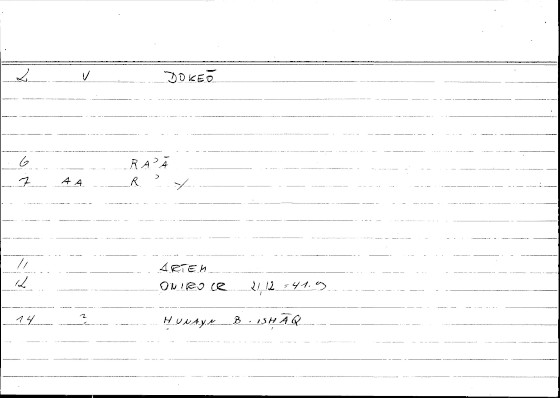 2 V DOKEŌ
6 RAʾĀ
7 AA R ʾ y
11 ARTEM
12 ONIROCR 21,12 = 41.9
14 ? ḤUNAYN B. ISḤĀQ